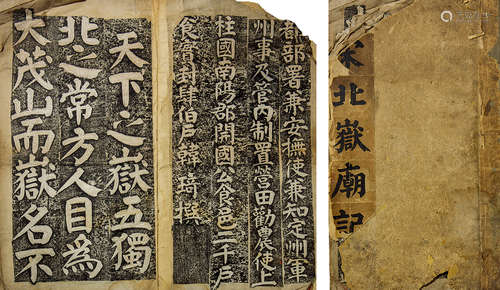 部署兼安撫使兼知定州軍
州事及管內制置營田勸農使上
柱國南陽郡開國公食邑二千戶
食實封肆伯戶韓琦撰
天下之嶽五獨
北之常方人目為
大茂山而嶽名不
宋北嶽廟記